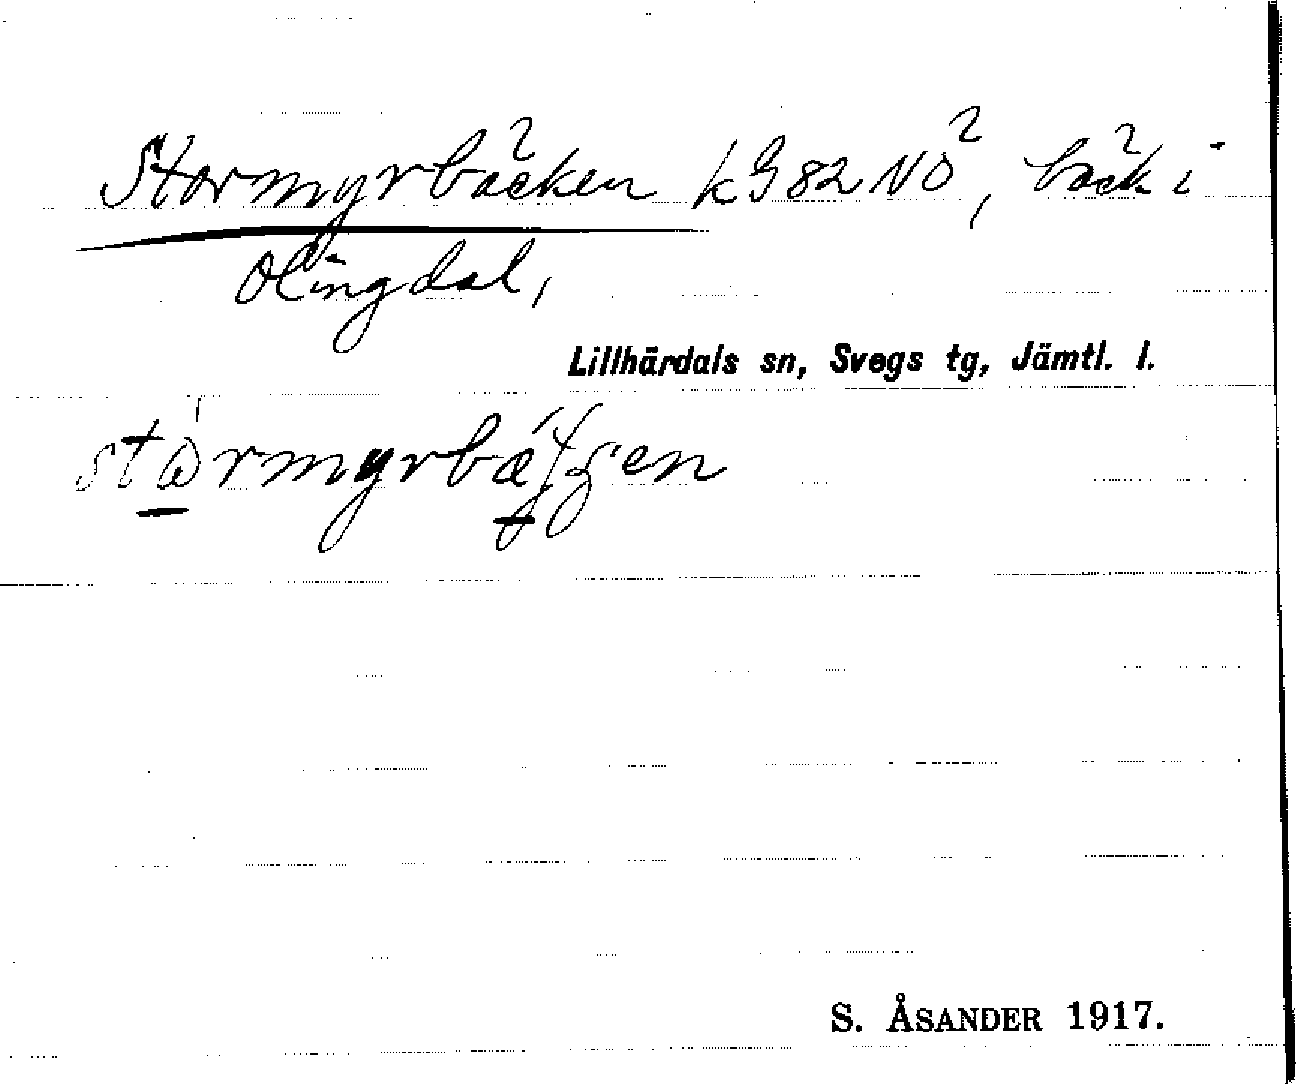 Stormyrbäcken kG82NÖ, bäck i
Olingdal,
Lillhärdals sn, Svegs tg, Jämtl. l.
S. ÅSANDER 1917.